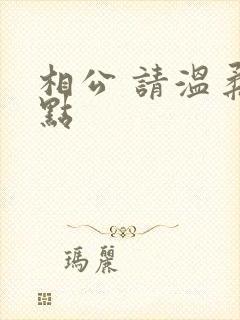 相公 請溫柔
點
瑪麗